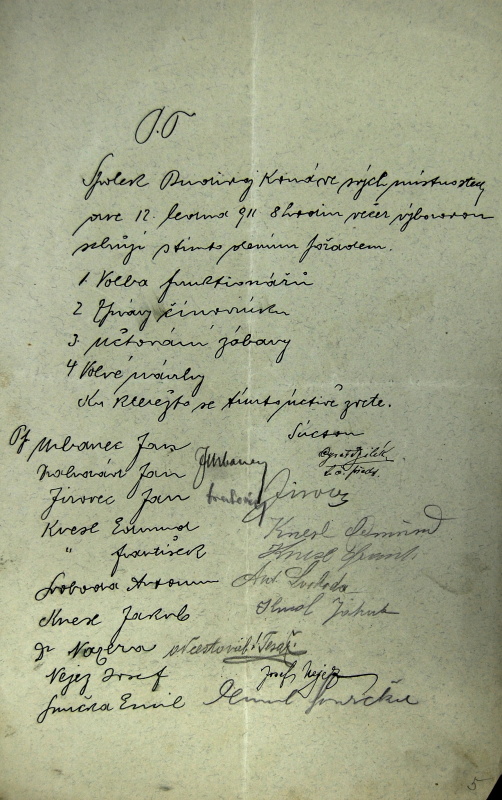 P.T
Spolek Budivoj Koná ve svých místnostech
dne 12. ledna 911 8 hodin večer výborovou
schůzi s tímto denním pořadem.
1 Volba funkcionářů
2 Zprávy činovníků
3. Účtování zábavy
4 Volné návrhy
Ku Kteréžto se tímto uctivě zvete.
Súctou
Pt Urbanec Jan JUrbanec
Jan
Jirovec Jan Jirovec
Knesl Edmund Knesl Edmund
" František Knesl Frant.
Svoboda Antonín Ant. Svoboda
Knesl Jakub Knesl Jakub
Dr Nagera
Nejez Josef Josef Nejez
Smrčka Emil Emil Smrčka
5